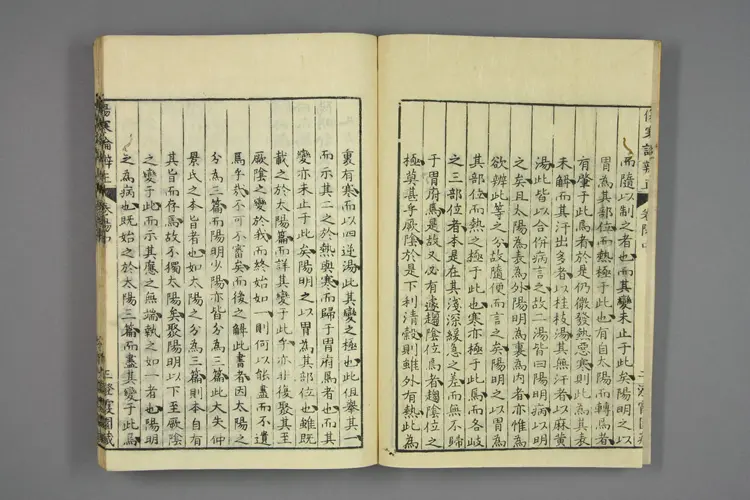 而隨以制之者也而其變未止于此矣陽明之以
胃為其部位而熱極于此也有自太陽而轉焉者
有肇于此焉者於是仍微發熱惡寒則此為其表
未解而其汗出多者以桂枝湯其無汗者以麻黃
湯此皆以合併病言之故二湯皆曰陽明病以明
之矣且太陽為表為外陽明為裏為内者亦惟為
欲辨此等之分故隨便而言之矣陽明之以胃為
其部位而熱之極于此也寒亦極于此焉而各歧
之三部位者本是在其淺深緩急之差而無不歸
于胃府焉是故又必有遽趨陰位焉者趨陰位之
極莫甚乎厥陰於是下利清穀則雖外有熱此為
裏有寒而以四逆湯此其變之極也此但舉其一
而示其二之於熱與寒而歸于胃府焉者也而其
變亦未止于此矣陽明之以胃為其部位也雖既
載之於太陽篇而詳其變于此乎亦非復聚其至
厥陰之變於我而終始如一則何以能盡而不遺
焉乎哉不可不審矣而後之解此書者因太陽之
分為三篇而陽明少陽亦皆分為三篇此大失仲
景氏之本旨者也如太陽之分為三篇則本自有
其旨而存焉故不獨太陽矣聚陽明以下至厥陰
之變于此而示其應之無端執之如一者也陽明
之為病也既始之於太陽三篇而盡其變于此焉
傷寒論辨正 卷陽明